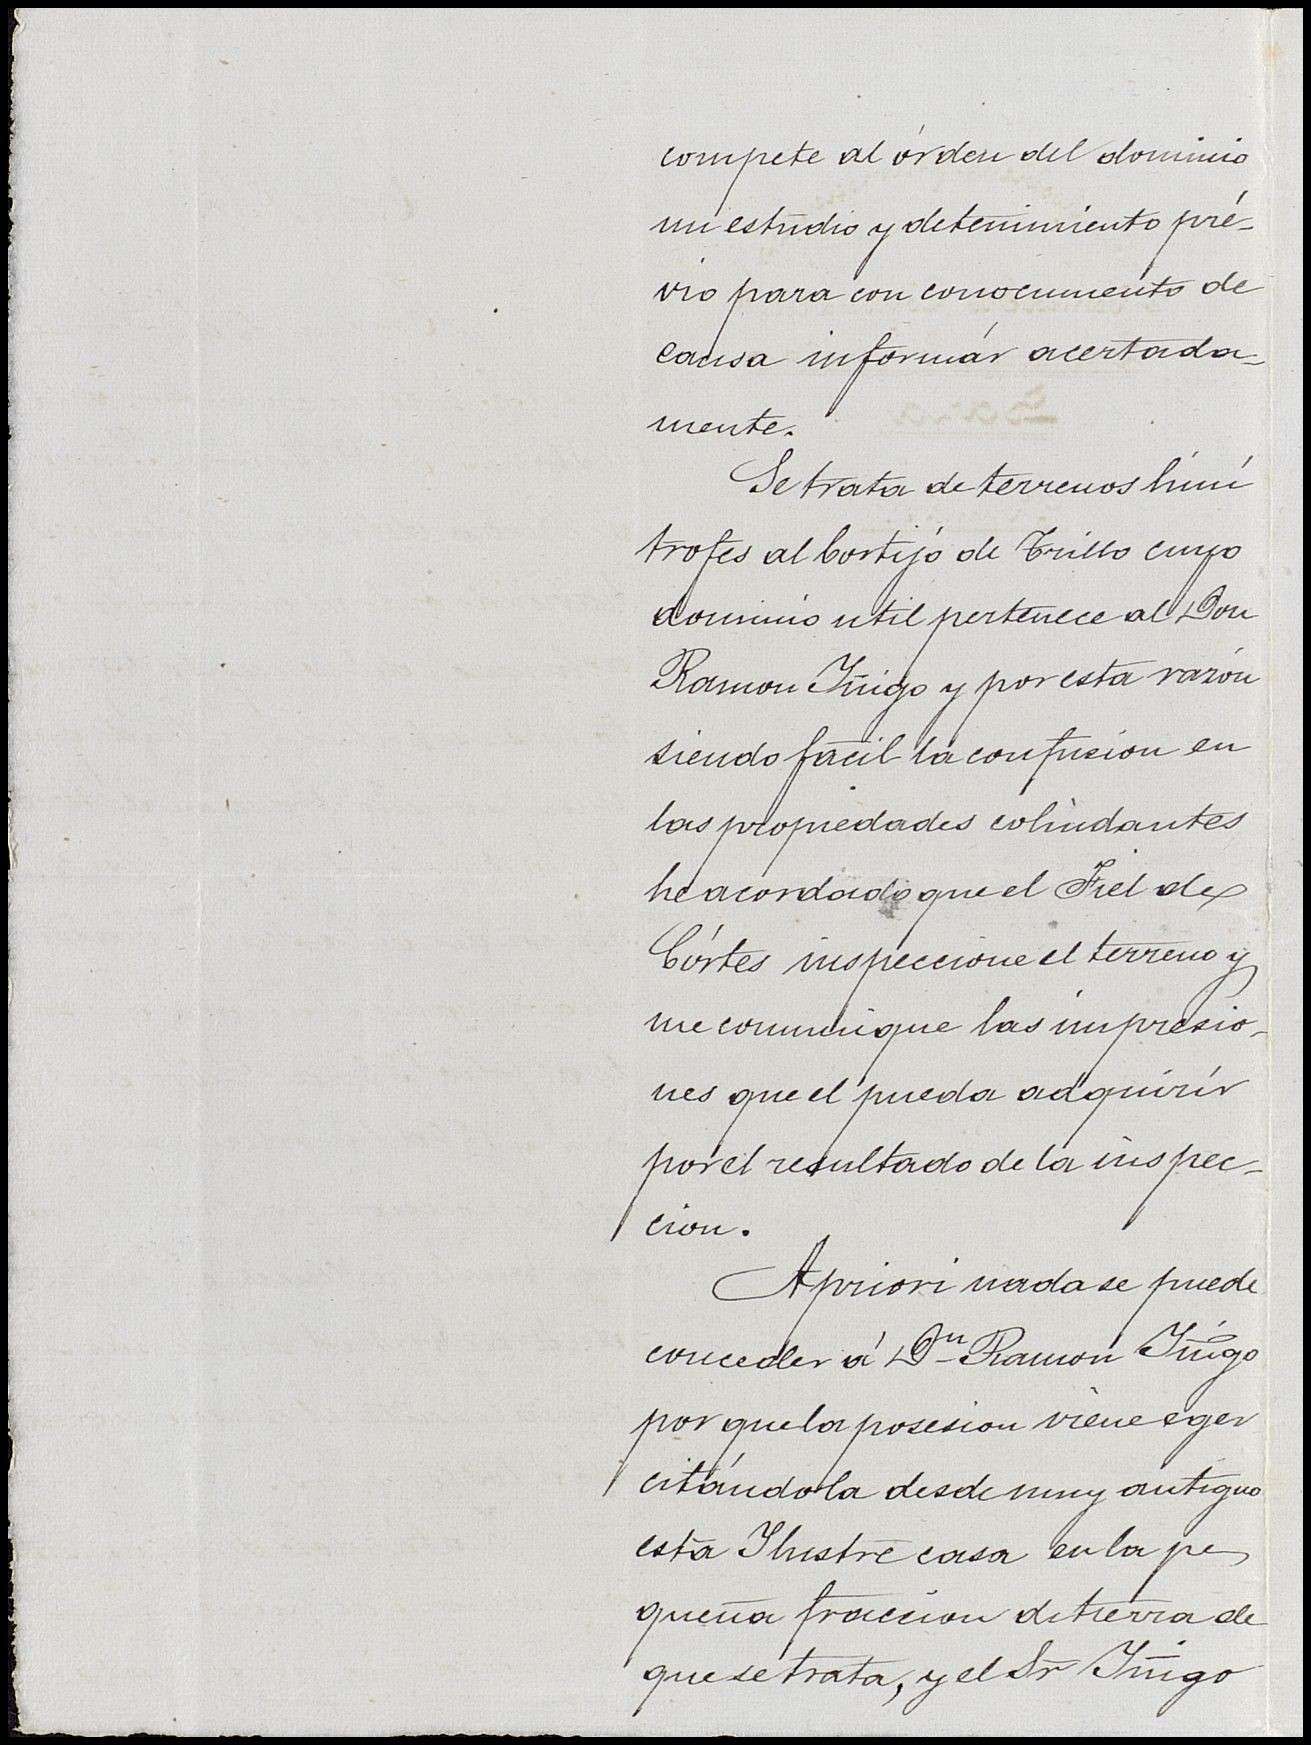 compete al órden del dominio
un estudio y detenimiento pré-
vio para con conocimiento de
causa informár acertada-
mente.
Se trata de terrenos limi
trofes al Cortijo de Trillo cuyo
dominio util pertenece al Don
Ramon Iñigo y por esta razón
siendo facil la confusion en
las propiedades colindantes
he acordado que el Fiel de
Córtes inspeccione el terreno y
me comunique las impresio-
nes que el pueda adquirir
por el resultado de la inspec-
cion.
Apriori nada se puede
conceder á Dn Ramon Iñigo
por que la posesion viene eger
citándola desde muy antiguo
esta Ilustre casa en la pe
queña fraccion de tierra de
que se trata, y el Sr Iñigo